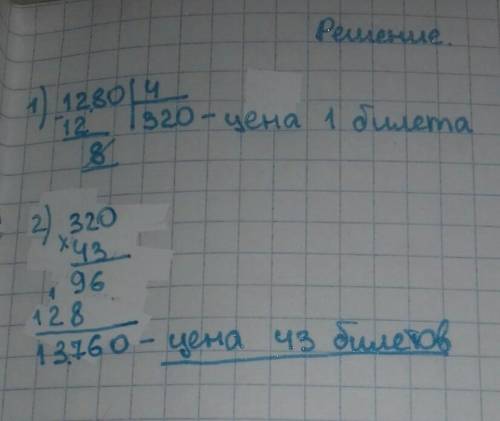 Решение.
1) 1280 | 4
- 12 | 320 - цена 1 билета
8
2) 320
x 43
96
128
13760 - цена 43 билетов